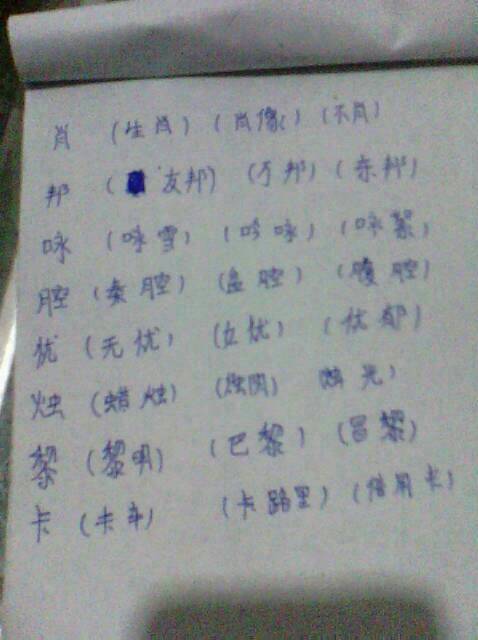 肖 (生肖) (肖像) (不肖)
邦 (友邦) (邦) (东邦)
咏 (咏雪) (吟咏) (咏絮)
腔 (秦腔) (盆腔) (腹腔)
忧 (无忧) (忧) (忧郁)
烛 (蜡烛) (烛肉) 烛光)
黎 (黎明) (巴黎) (冒黎)
卡 (卡车) (卡路里) (信用卡)